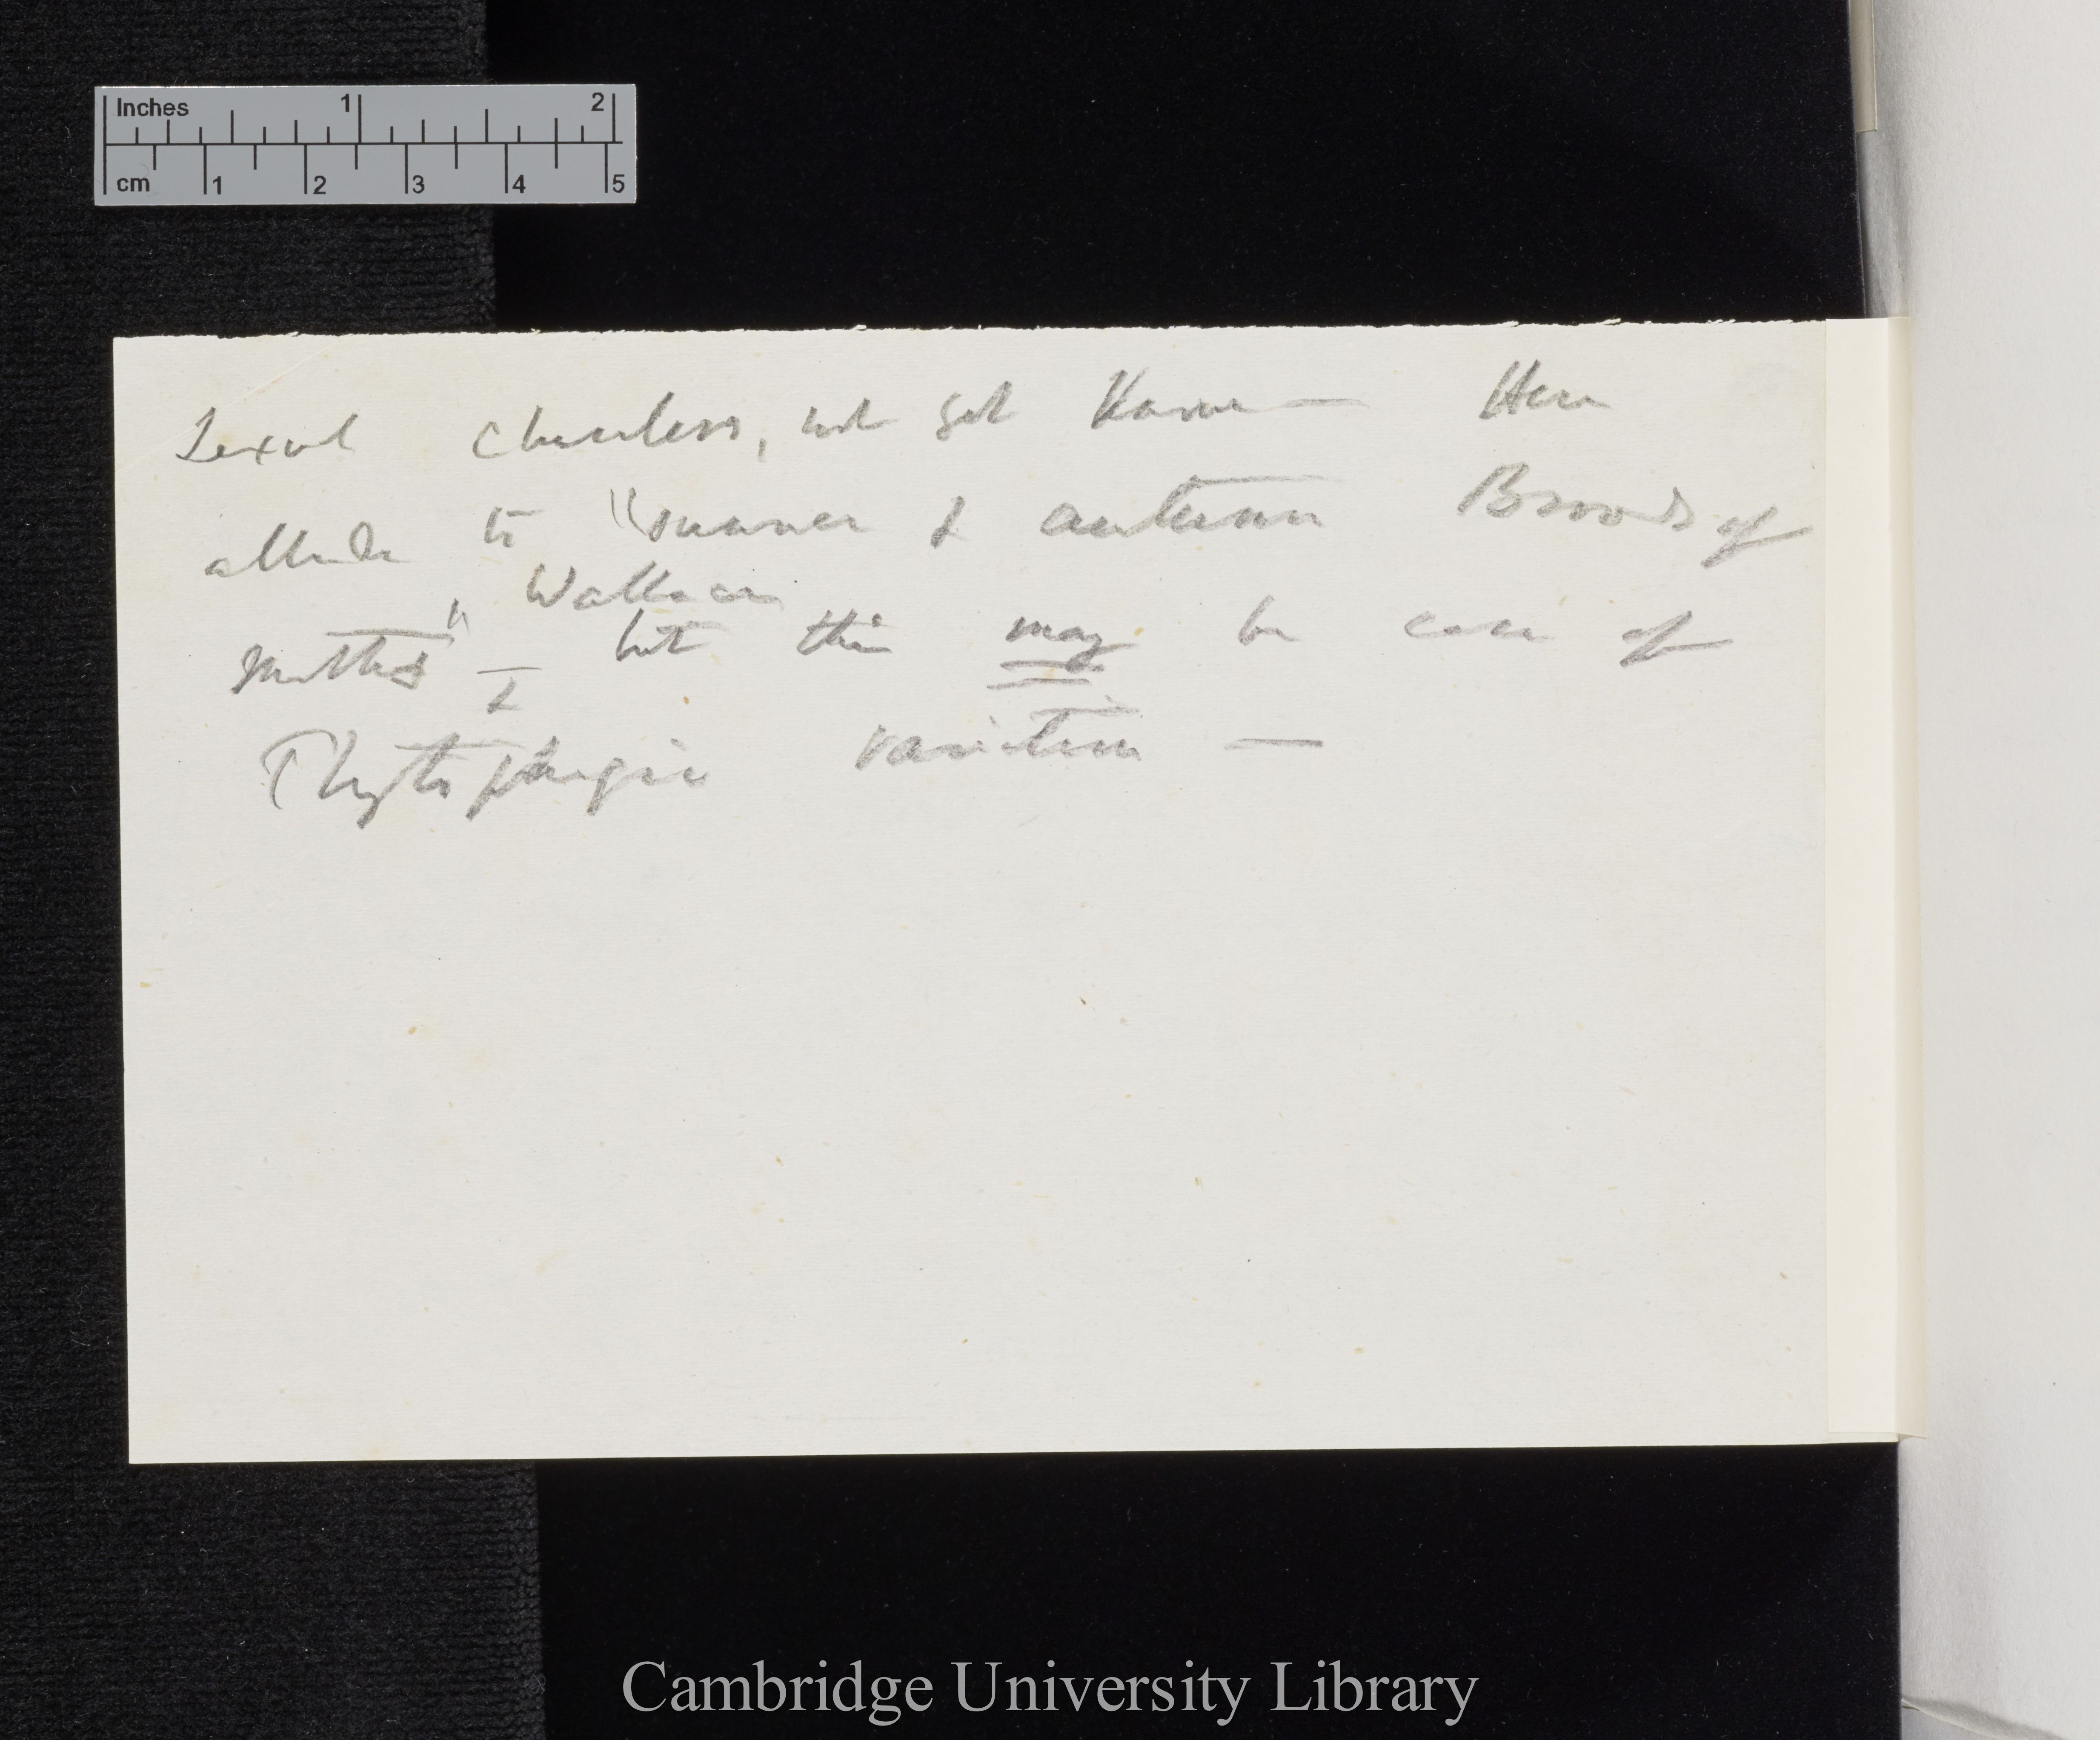 Inches 1 2
cm 1 2 3 4 5
Sexual characters, not get Here
allude to "summer & autumn Broods of
Moths" — but this may be case of
Wallace
&
Phytophagic varieties —
Cambridge University Library